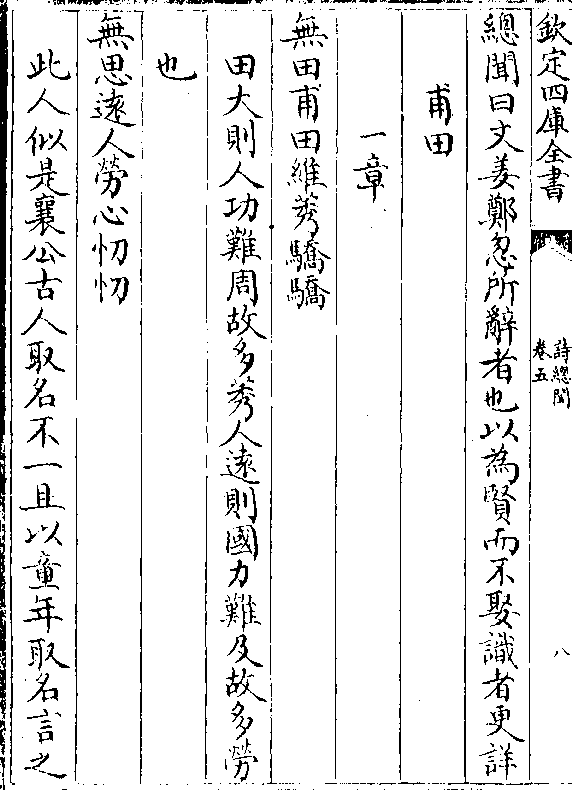 欽定四庫全書
詩總聞
卷五
八
總聞曰文姜鄭忽所辭者也以為賢而不娶識者更詳
甫田
一章
無田甫田維莠驕驕
田大則人功難周故多莠人遠則國力難及故多勞
也
無思遠人勞心忉忉
此人似是襄公古人取名不一且以童年取名言之